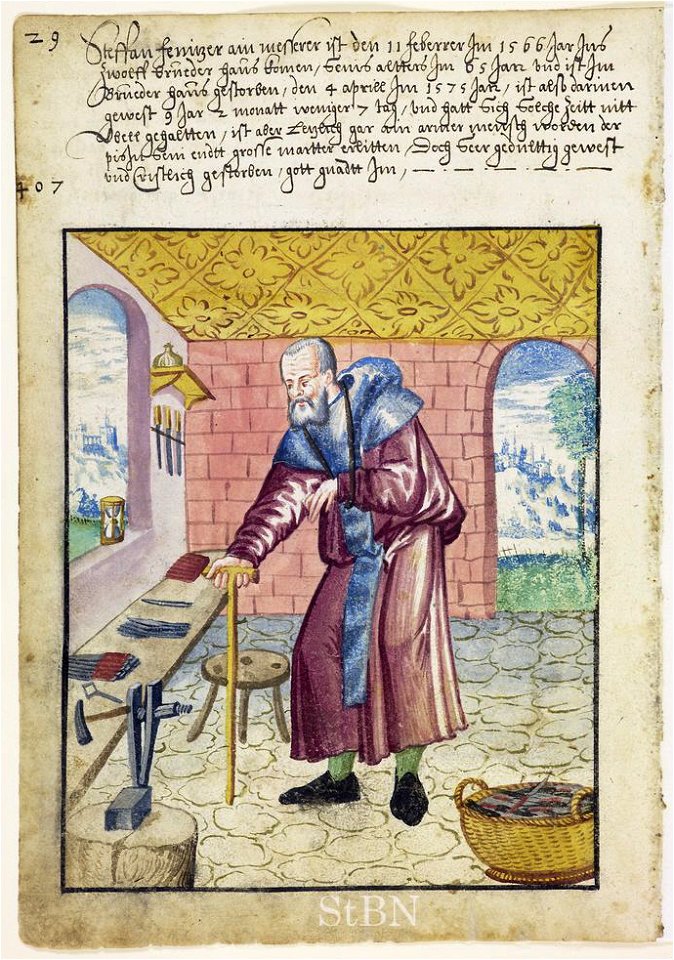 29
Steffan fenitzer ain messerer ist den 11 feberrer Im 1566 Jar Ins
zwolff brueder haus komen, Seins altters Im 65 Jarr vnd ist Im
Brueder haus gestorben, den 4 aprill Im 1575 Jarr, ist also darinen
gewest 9 Jar 2 monatt weniger 7 tag, vnd hatt Sich Solche zeitt nitt
Vbell gehaltten, ist aber Letzlich gar ain armer mensch worden der
pis zu Sein endtt grosse martter erlitten, Doch Seer gedulttig gewest
vnd Cristlich gestorben, gott gnadtt Im,
407
StBN